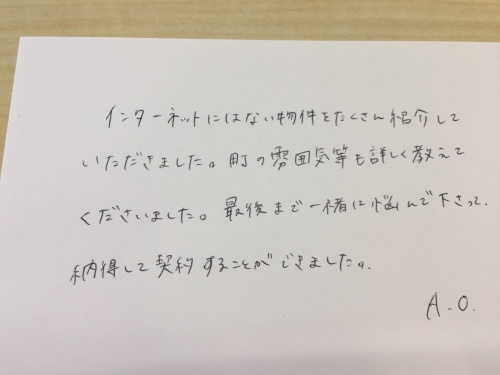 インターネットにはない物件をたくさん紹介して
いただきました。町の雰囲気等も詳しく教えて
くださいました。最後まで一緒に悩んで下さって、
納得して契約することができました。
A.O.